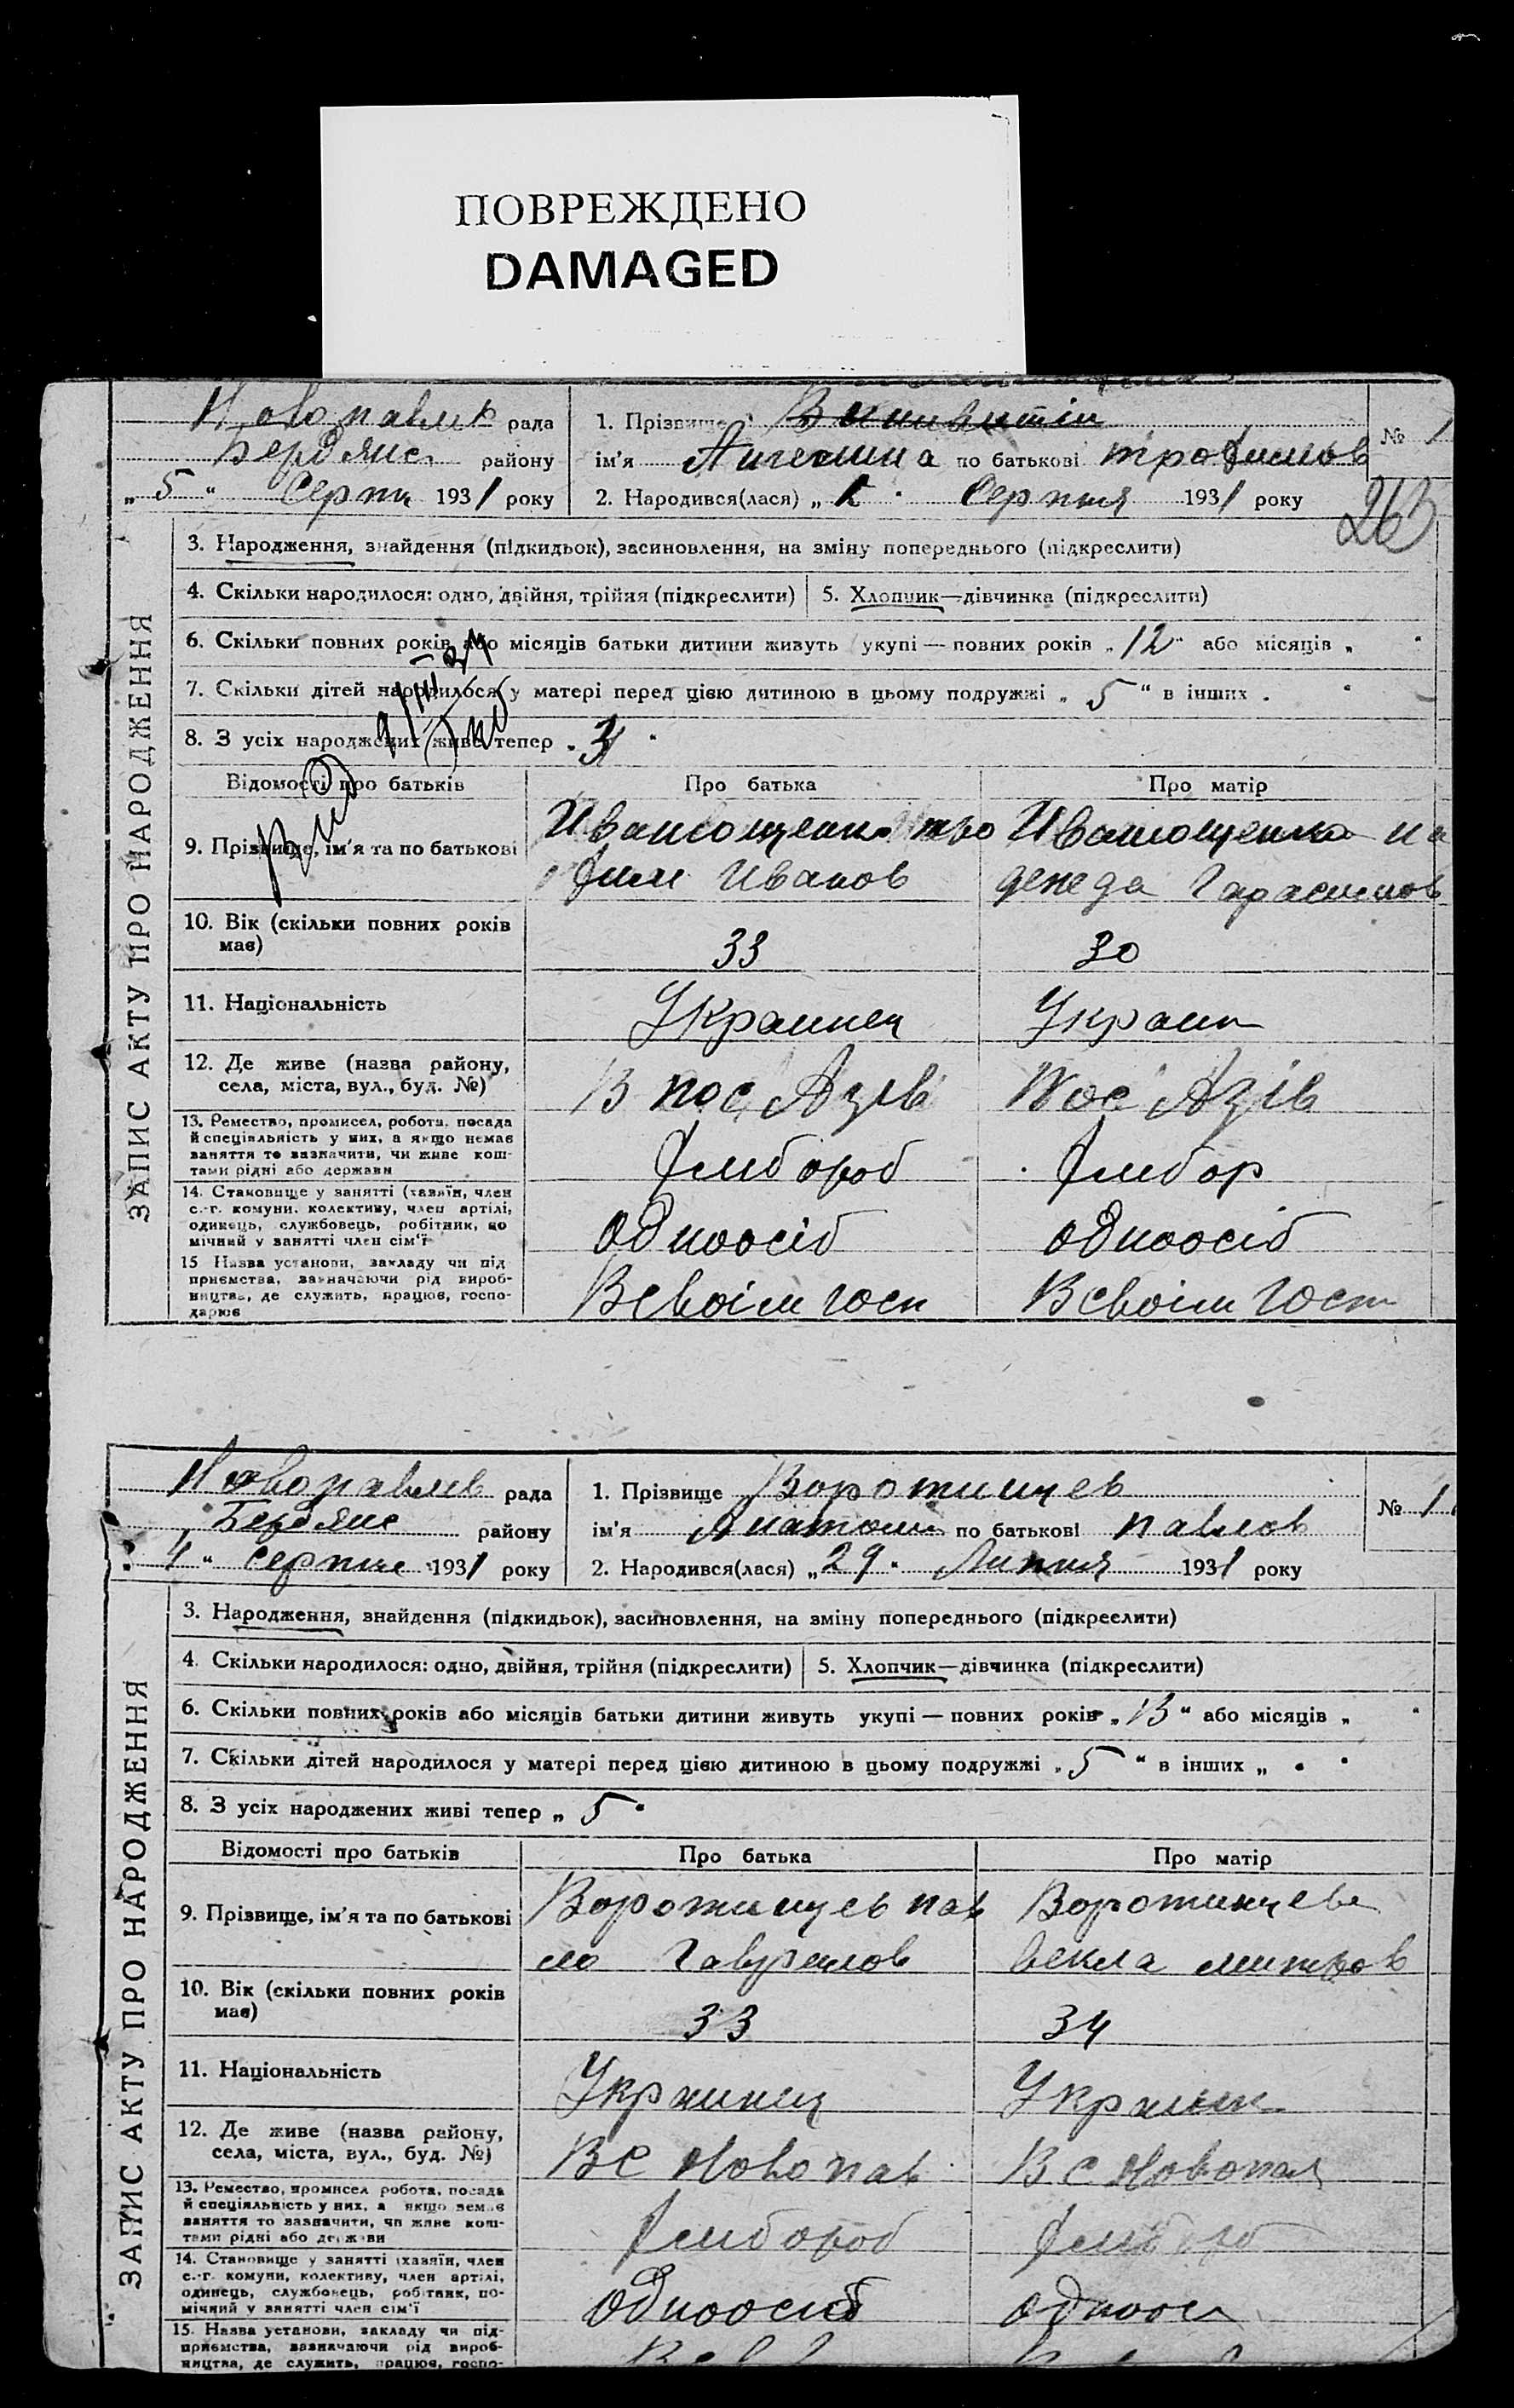 ПОВРЕЖДЕНО
DAMAGED
Новопавлів рада
Бердянс району
„ 5 “ Серпн 1931 року
1. Прізвище
ім'я по батькові трофимов
2. Народився(лася) „ “ Серпня 1931 року
№ 1
263
ЗАПИС АКТУ ПРО НАРОДЖЕННЯ
3. Народження, знайдення (підкидьок), засиновлення, на зміну попереднього (підкреслити)
4. Скільки народилося: одно, двійня, трійня (підкреслити)
5. Хлопчик—дівчинка (підкреслити)
6. Скільки повних років або місяців батьки дитини живуть укупі — повних років „ 12 “ або місяців „ “
7. Скільки дітей народилося у матері перед цією дитиною в цьому подружжі „ 5 “ в інших „ “
8. З усіх народжених живе тепер „ 3 “
Відомості про батьків
Про батька
Про матір
9. Прізвище, ім'я та по батькові
Иванющенко тро
фим Иванов
Иванющенко на
дежда Гарасимов
10. Вік (скільки повних років
має)
33
30
11. Національність
Украинец
Украин
12. Де живе (назва району,
села, міста, вул., буд. №)
В пос Азів
Пос Азів
13. Ремество, промисел, робота, посада
й спеціяльність у них, а якщо немає
заняття то зазначити, чи живе кош-
тами рідні або держави
хлибороб
хлибор
14. Становище у занятті (хазяїн, член
с.-г. комуни, колективу, член артілі,
одинець, службовець, робітник, по
мічний у занятті член сім'ї
одноосіб
одноосіб
15 Назва установи, закладу чи під
приємства, зазначаючи рід вироб-
ництва, де служить, працює, госпо-
дарює
В своім госп
В своім госп
Новопавлів рада
Бердянс району
„ 4 “ серпня 1931 року
1. Прізвище Воротинцев
ім'я Анатолий по батькові павлов
2. Народився(лася) „ 29 “ Липня 1931 року
№ 1
ЗАПИС АКТУ ПРО НАРОДЖЕННЯ
3. Народження, знайдення (підкидьок), засиновлення, на зміну попереднього (підкреслити)
4. Скільки народилося: одно, двійня, трійня (підкреслити)
5. Хлопчик—дівчинка (підкреслити)
6. Скільки повних років або місяців батьки дитини живуть укупі — повних років „ 13 “ або місяців „ “
7. Скільки дітей народилося у матері перед цією дитиною в цьому подружжі „ 5 “ в інших „ “
8. З усіх народжених живі тепер „ 5 “
Відомості про батьків
Про батька
Про матір
9. Прізвище, ім'я та по батькові
Воротинцев пав
ло Гаврилов
Воротинцева
векла митров
10. Вік (скільки повних років
має)
33
34
11. Національність
Украинец
Украинк
12. Де живе (назва району,
села, міста, вул., буд. №)
В С Новопав
В с Новопав
13. Ремество, промисел робота, посада
й спеціяльність у них, а якщо немає
заняття то зазначити, чи живе кош-
тами рідні або держави
хлибороб
хлибороб
14. Становище у занятті (хазяїн, член
с.-г. комуни, колективу, член артілі,
одинець, службовець, робітник, по-
мічний у занятті член сім'ї
одноосиб
одноос
15. Назва установи, закладу чи під-
приємства, зазначаючи рід вироб-
ництва, де служить, працює, госпо-